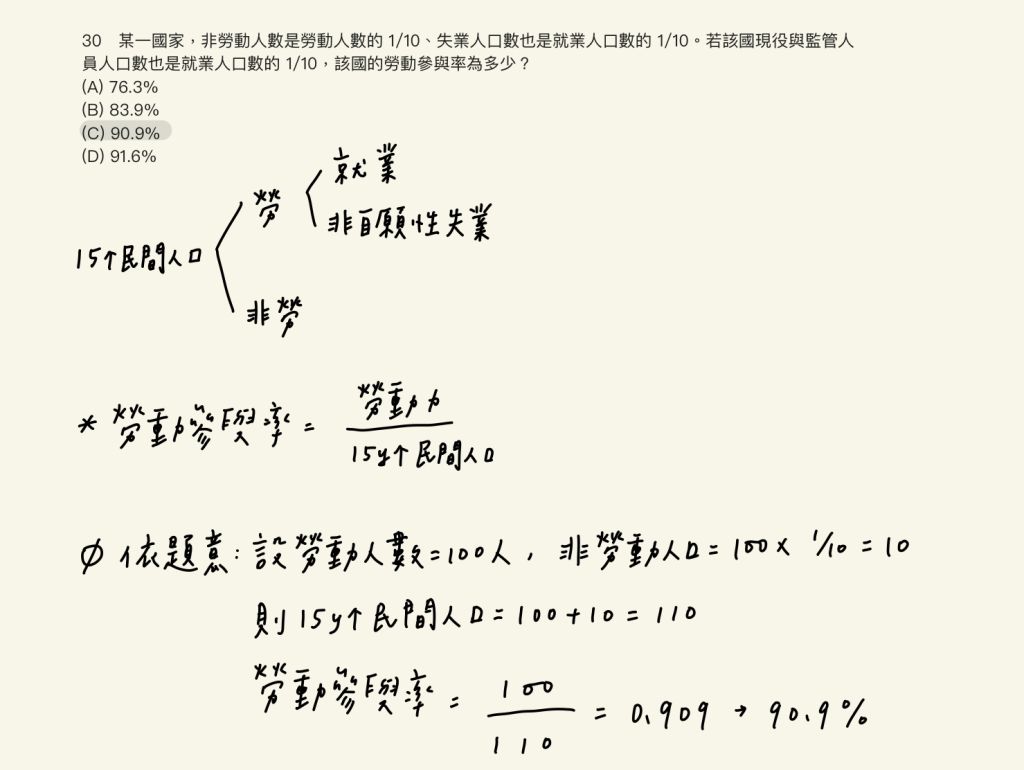 30 某一國家，非勞動人數是勞動人數的 1/10、失業人口數也是就業人口數的 1/10。若該國現役與監管人
員人口數也是就業人口數的 1/10，該國的勞動參與率為多少？
(A) 76.3%
(B) 83.9%
(C) 90.9%
(D) 91.6%
就業
勞
非自願性失業
15↑民間人口
非勞
* 勞動參與率 = 勞動力
15y↑民間人口
∅ 依題意：設勞動人數=100人，非勞動人口=100× 1/10 = 10
則15y↑民間人口=100+10 = 110
勞動參與率 = 100
110
= 0.909 → 90.9%